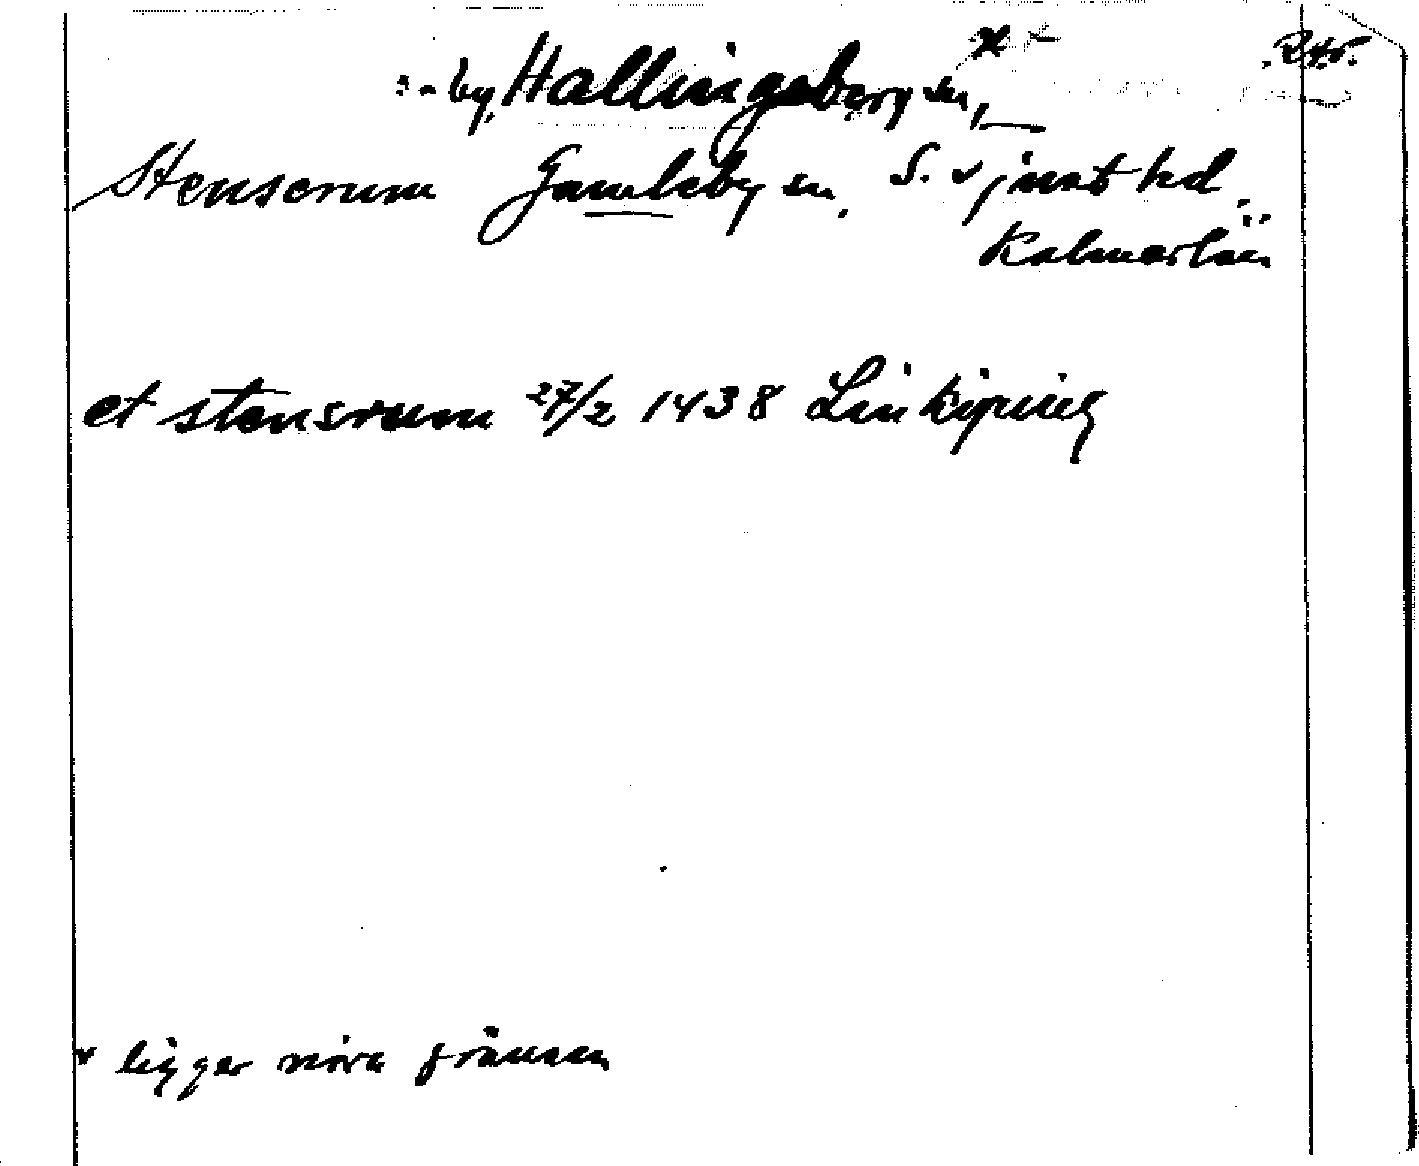 by, Hallingeberg sn,
Stensrum Gamleby sn, S. Tjust hd
Kalmar län
et stensrum 27/2 1438 Linköping
x ligger nära gränsen